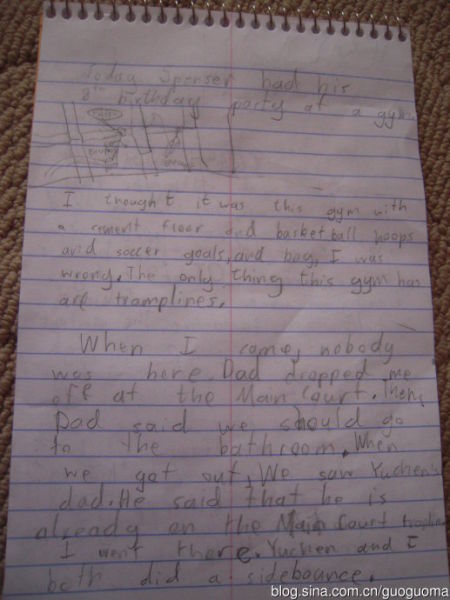 Today Spenser had his
8th birthday party at a gym
I thought it was this gym with
a cement floor and basketball hoops
and soccer goals, and boy, I was
wrong. The only thing this gym has
are tramplines.
When I came, nobody
was here. Dad dropped me
off at the Main Court. Then,
Dad said we should go
to the bathroom. When
we got out, We saw Yuchen's
dad. He said that he is
already on the Main Court
I went there. Yuchen and I
both did a sidebounce.
blog.sina.com.cn/guoguoma